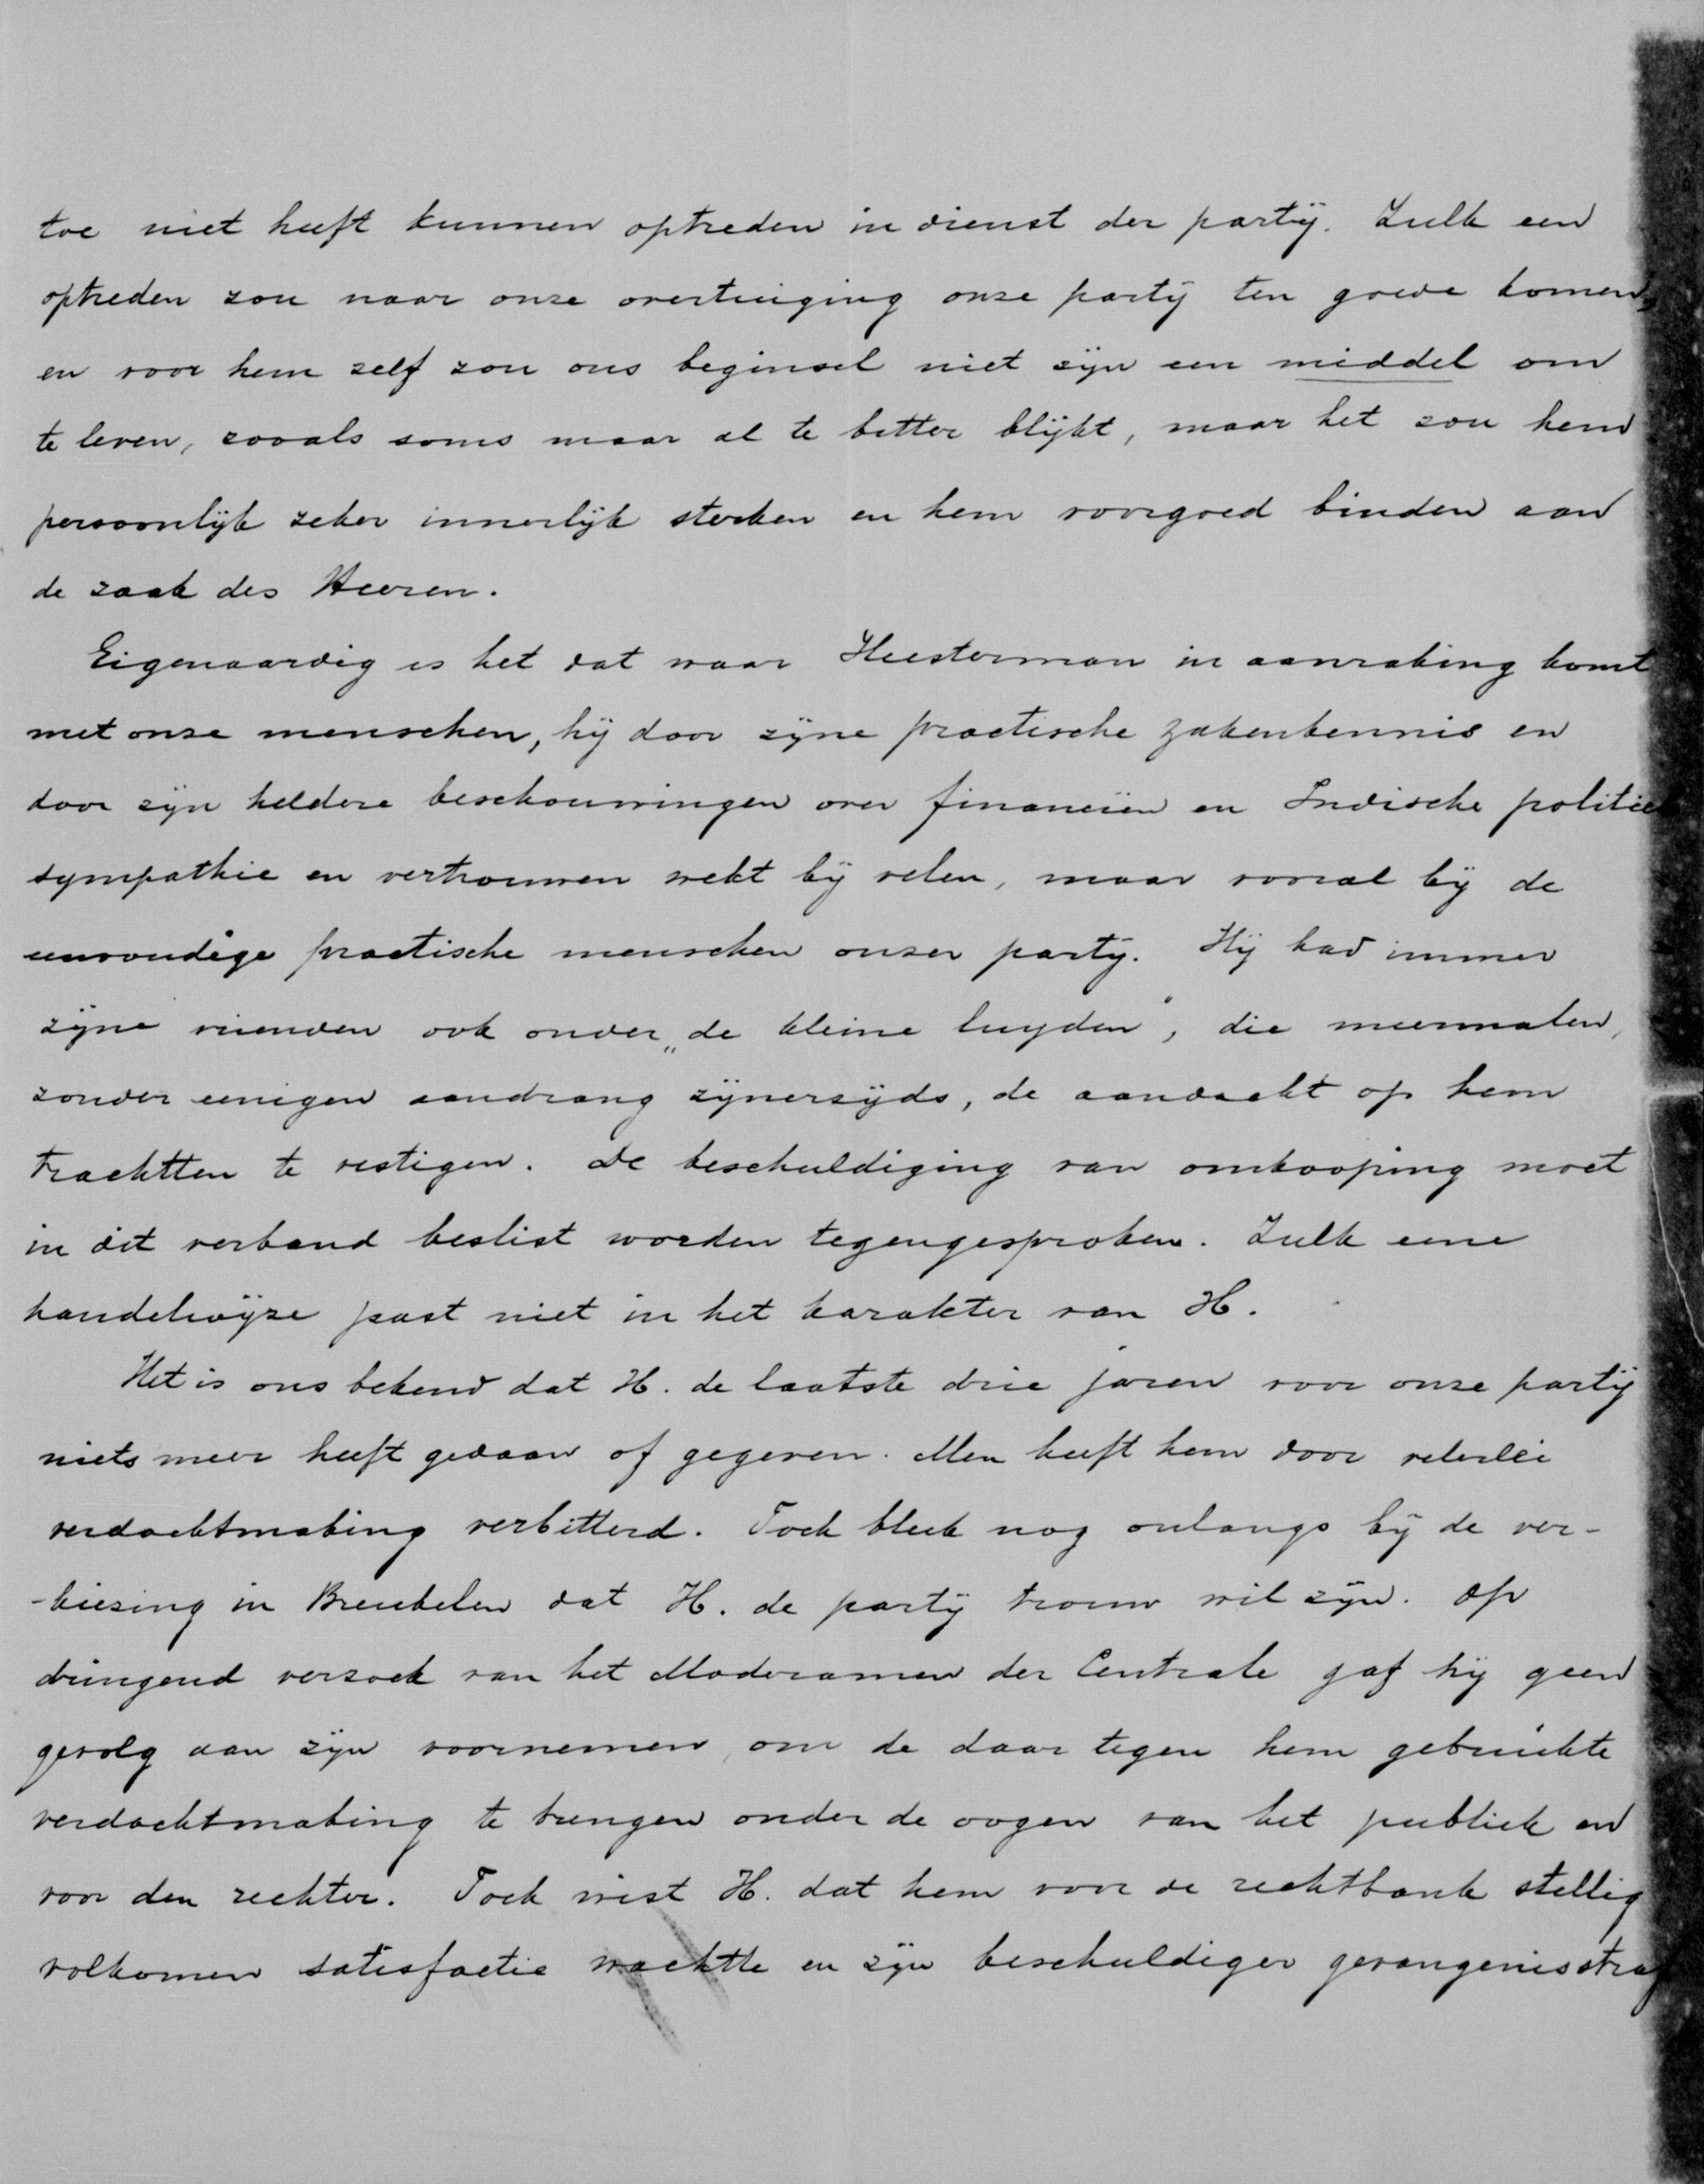 toe niet heeft kunnen optreden in dienst der partij. Zulk een
optreden zou naar onze overtuiging onze partij ten goede komen,
en voor hem zelf zou ons beginsel niet zijn een middel om
te leven, zooals soms maar al te bitter blijkt, maar het zou hem
persoonlijk zeker innerlijk sterken en hem voorgoed binden aan
de zaak des Heeren.
Eigenaardig is het dat waar Heesterman in aanraking komt
met onze menschen, hij door zijne practische zakenkennis en
door zijn heldere beschouwingen over financiën en Indische politiek
sympathie en vertrouwen wekt bij velen, maar vooral bij de
eenvoudige practische menschen onzer partij. Hij had immer
zijne vrienden ook onder „de kleine luyden", die meermalen,
zonder eenigen aandrang zijnerzijds, de aandacht op hem
trachtten te vestigen. De beschuldiging van omkooping moet
in dit verband beslist worden tegengesproken. Zulk eene
handelwijze past niet in het karakter van H.
Het is ons bekend dat H. de laatste drie jaren voor onze partij
niets meer heeft gedaan of gegeven. Men heeft hem door velerlei
verdachtmaking verbitterd. Toch bleek nog onlangs bij de ver-
-kiezing in Breukelen dat H. de partij trouw wil zijn. Op
dringend verzoek van het Moderamen der Centrale gaf hij geen
gevolg aan zijn voornemen, om de daar tegen hem gebruikte
verdachtmaking te brengen onder de oogen van het publiek en
voor den rechter. Toch wist H. dat hem voor de rechtbank stellig
volkomen satisfactie wachtte en zijn beschuldiger gevangenisstraf